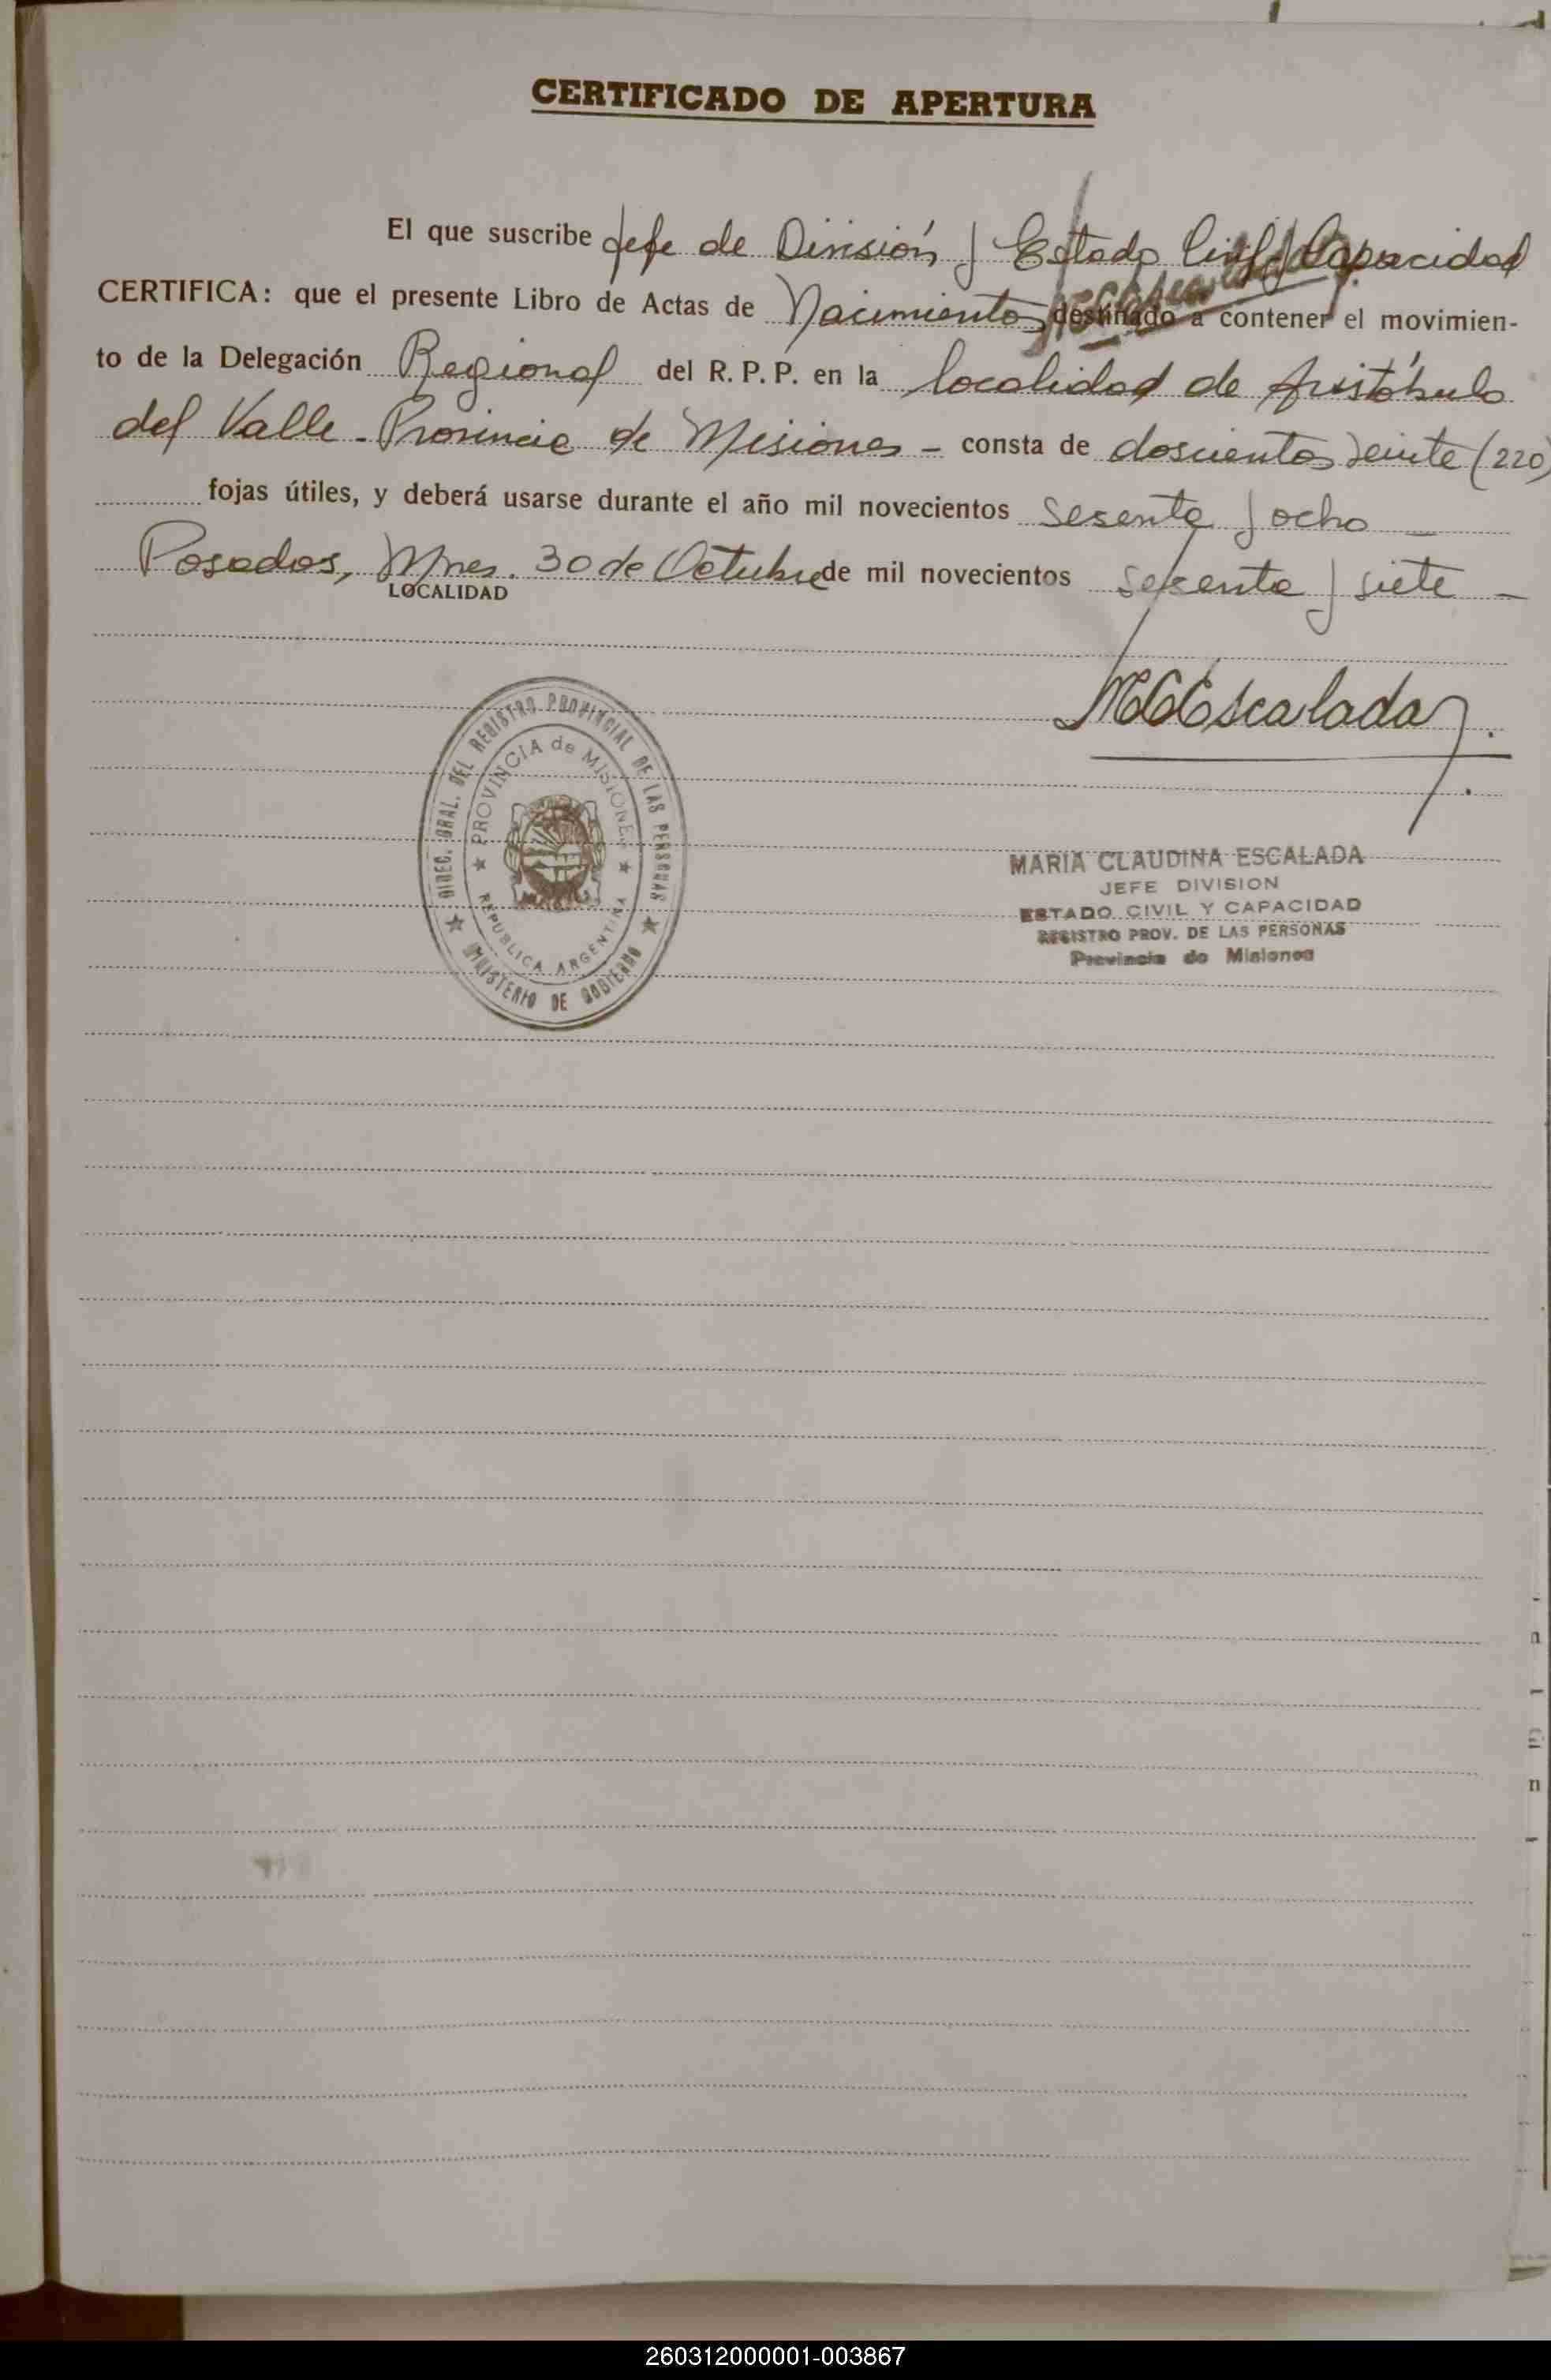 CERTIFICADO DE APERTURA
El que suscribe Jefe de División y Estado Civil y Capacidad
CERTIFICA: que el presente Libro de Actas de Nacimientos destinado a contener el movimien-
to de la Delegación Regional del R. P. P. en la localidad de Aristóbulo
del Valle - Provincia de Misiones - consta de doscientos veinte (220)
fojas útiles, y deberá usarse durante el año mil novecientos sesenta y ocho -
Posadas, Mnes. 30 de Octubre de mil novecientos sesenta y siete -
LOCALIDAD
MCEscalada
DIREC. GRAL. DEL REGISTRO PROVINCIAL DE LAS PERSONAS
PROVINCIA de MISIONES
REPUBLICA ARGENTINA
MINISTERIO DE GOBIERNO
MARIA CLAUDINA ESCALADA
JEFE DIVISION
ESTADO CIVIL Y CAPACIDAD
REGISTRO PROV. DE LAS PERSONAS
Provincia de Misiones
260312000001-003867